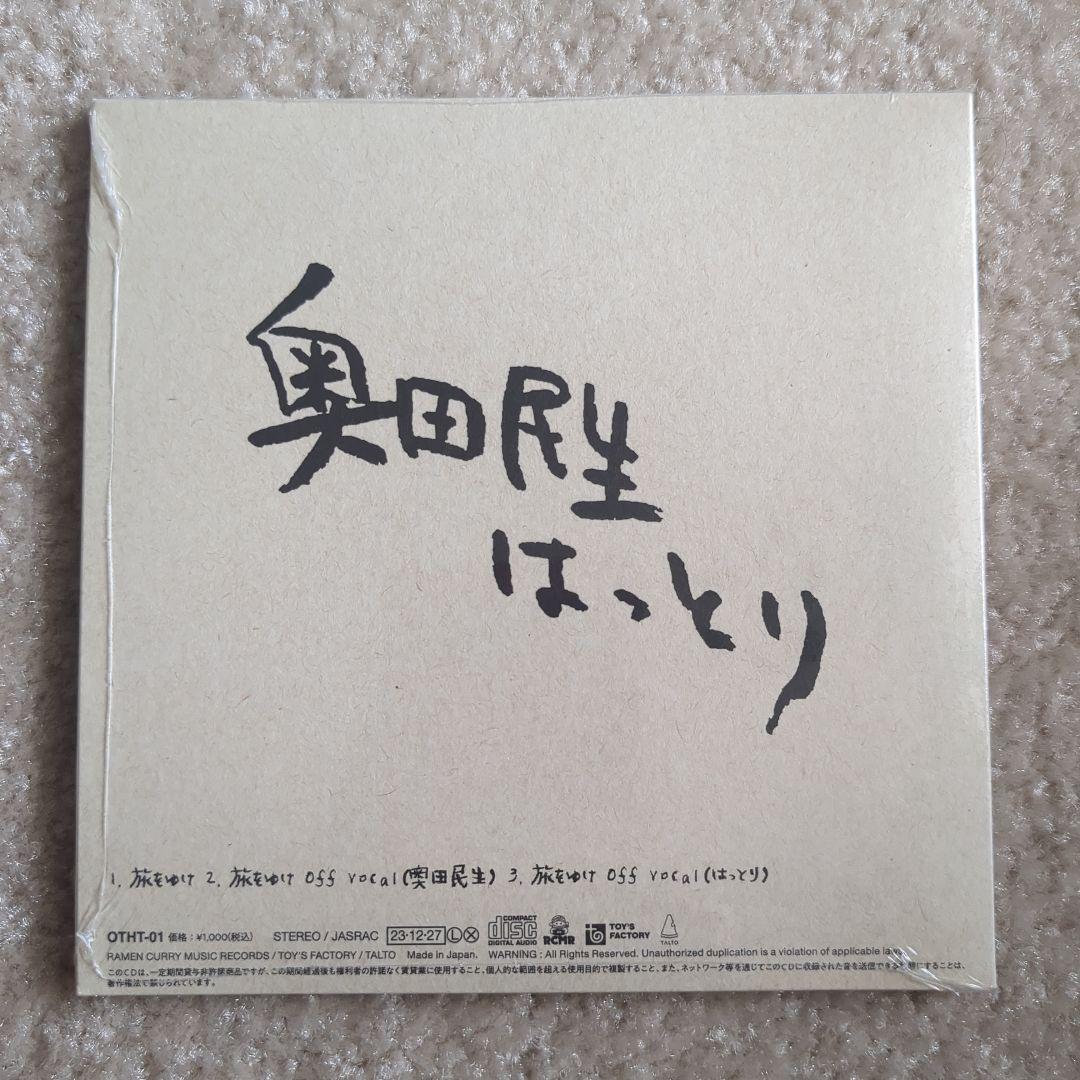 奥田民生
はっとり
1. 旅をゆけ 2. 旅をゆけ Off vocal(奥田民生) 3. 旅をゆけ Off vocal(はっとり)
OTHT-01 価格：¥1,000(税込) STEREO / JASRAC 23·12·27 Ⓛ Ⓧ COMPACT disc DIGITAL AUDIO RCMR TOY'S FACTORY TALTO
RAMEN CURRY MUSIC RECORDS / TOY'S FACTORY / TALTO Made in Japan. WARNING : All Rights Reserved. Unauthorized duplication is a violation of applicable
このCDは、一定期間貸与非許諾商品ですが、この期間経過後も権利者の許諾なく賃貸業に使用すること、個人的な範囲を超える使用目的で複製すること、また、ネットワーク等を通じてこのCDに収録された音を送信できる状態にすることは、
著作権法で禁じられています。